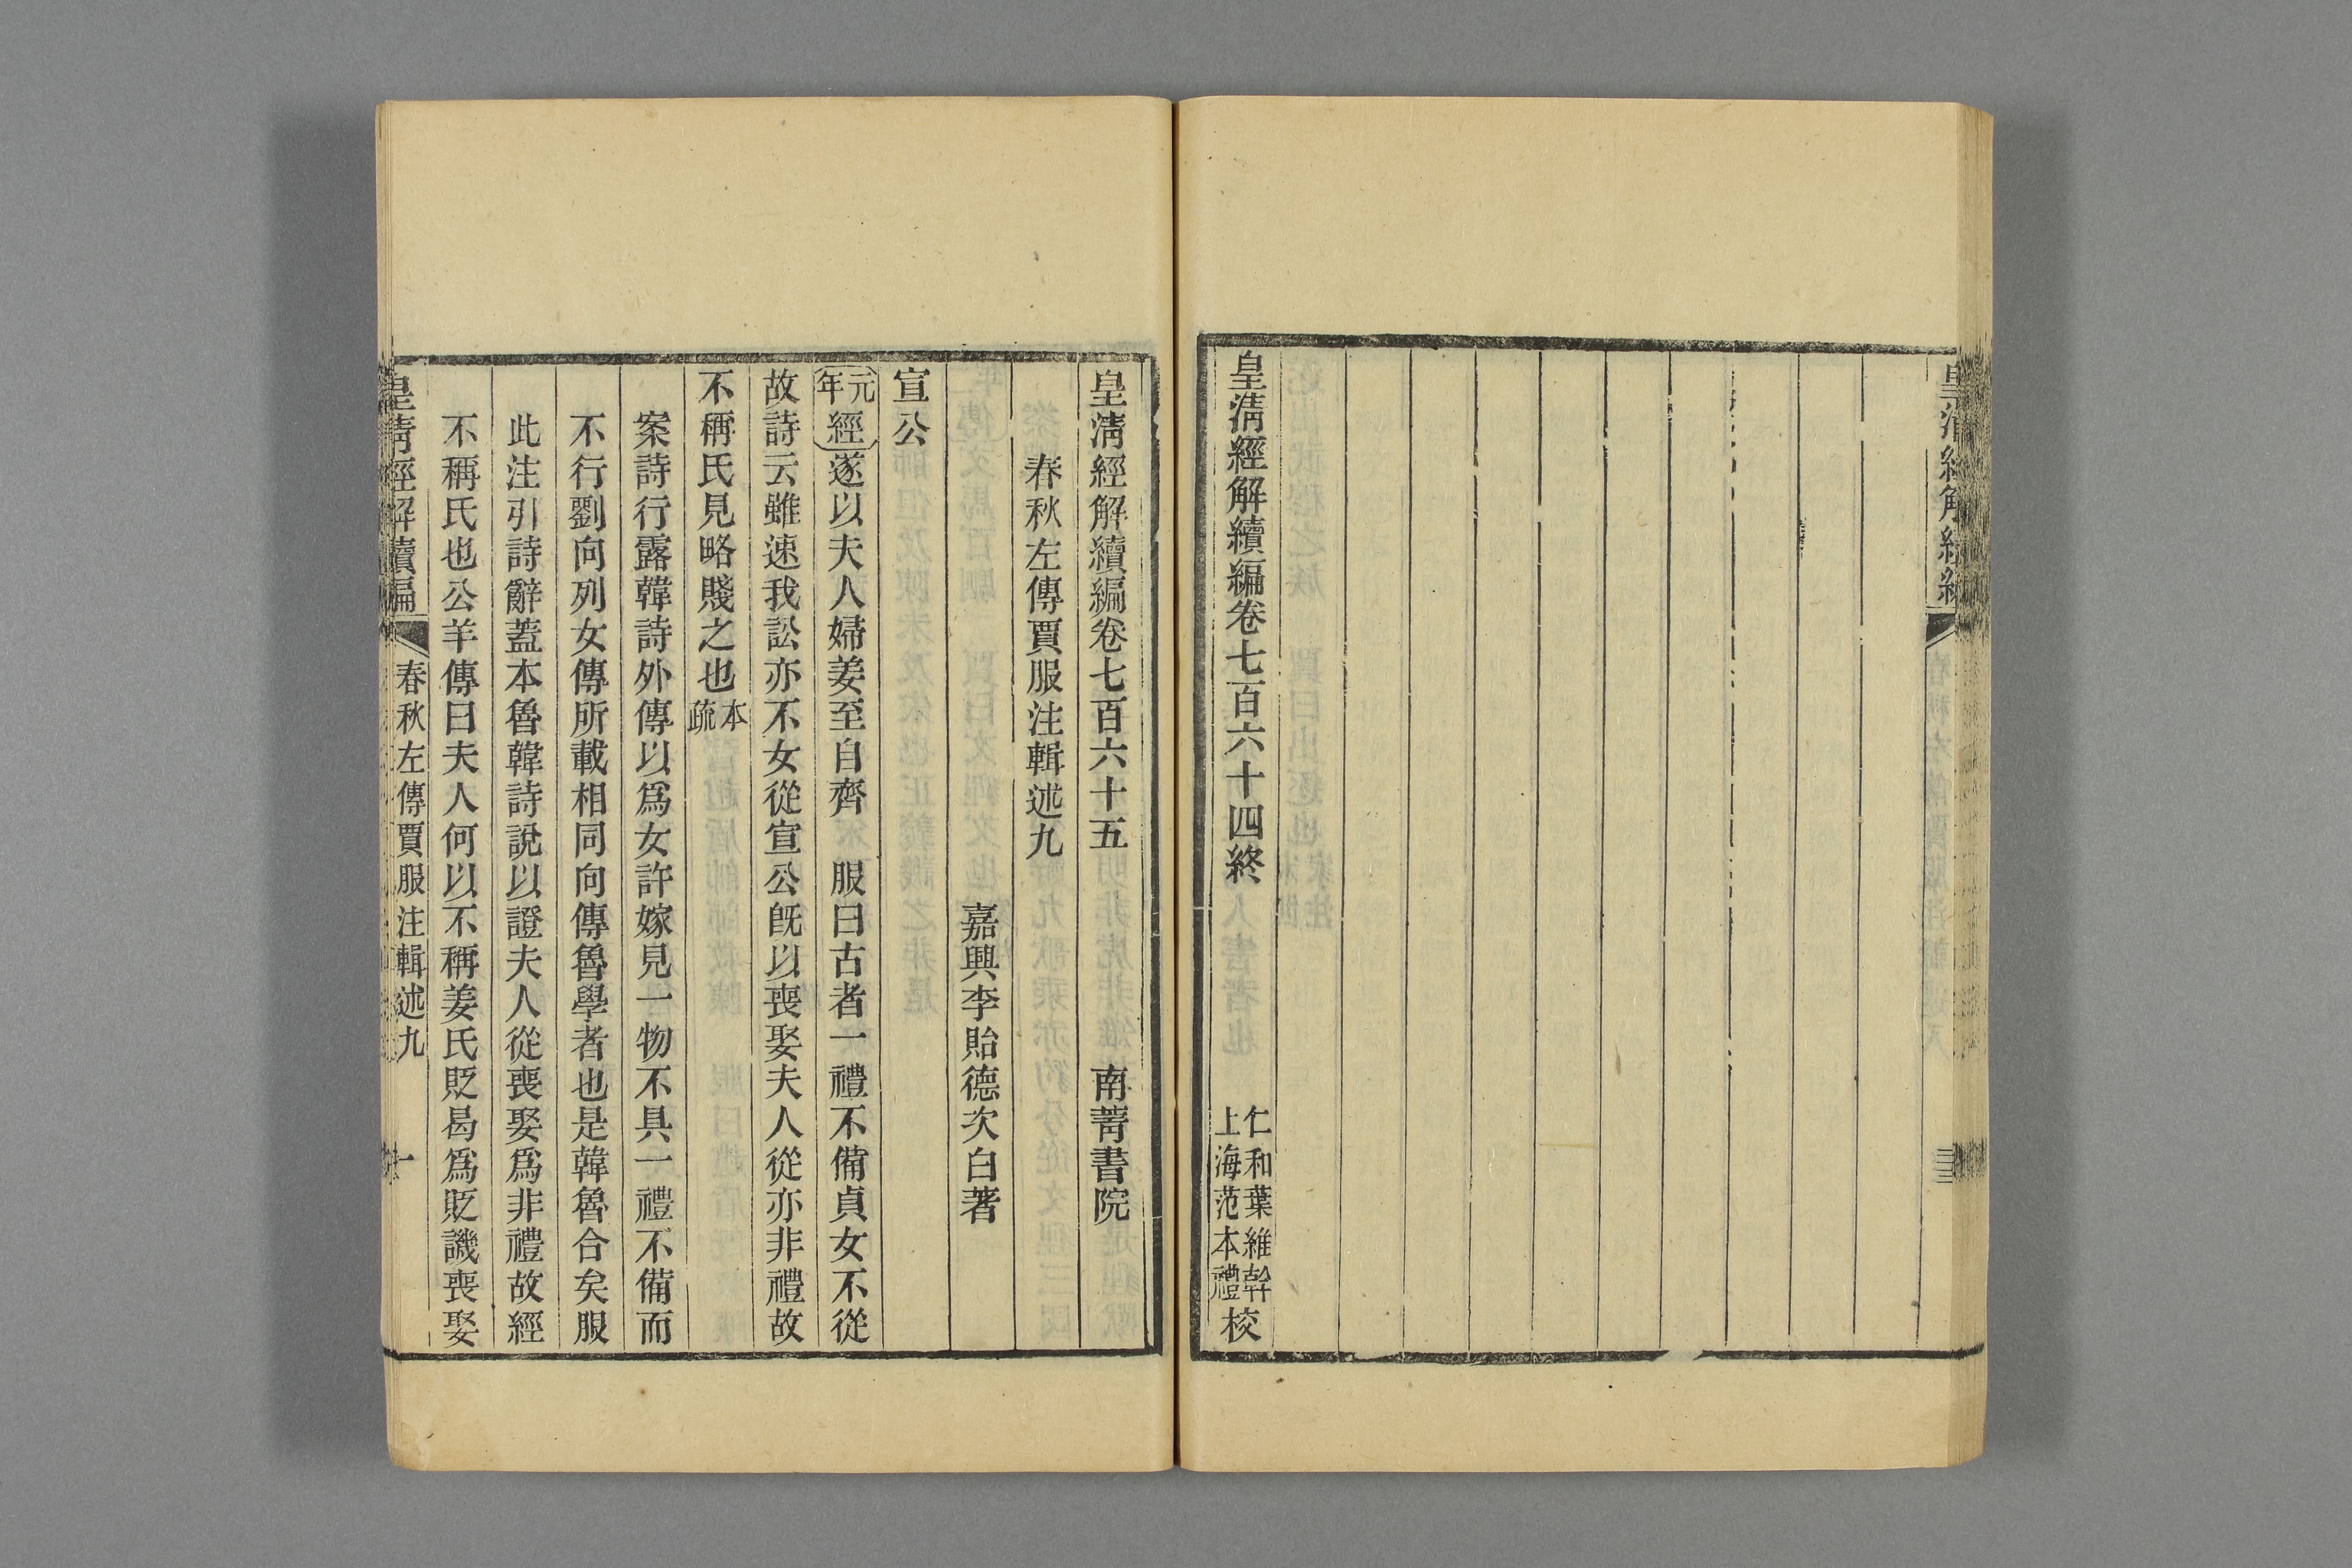 皇清經解續編卷七百六十四終
仁和葉維幹
上海范本禮
校
皇清經解續編卷七百六十五 南菁書院
春秋左傳賈服注輯述九
嘉興李貽德次白著
宣公
元年經遂以夫人婦姜至自齊 服曰古者一禮不備貞女不從
故詩云雖速我訟亦不女從宣公旣以喪娶夫人從亦非禮故
不稱氏見略賤之也本疏
案詩行露韓詩外傳以爲女許嫁見一物不具一禮不備而
不行劉向列女傳所載相同向傳魯學者也是韓魯合矣服
此注引詩辭蓋本魯韓詩說以證夫人從喪娶爲非禮故經
不稱氏也公羊傳曰夫人何以不稱姜氏貶曷爲貶譏喪娶
皇淸經解續編 春秋左傳賈服注輯述九 一